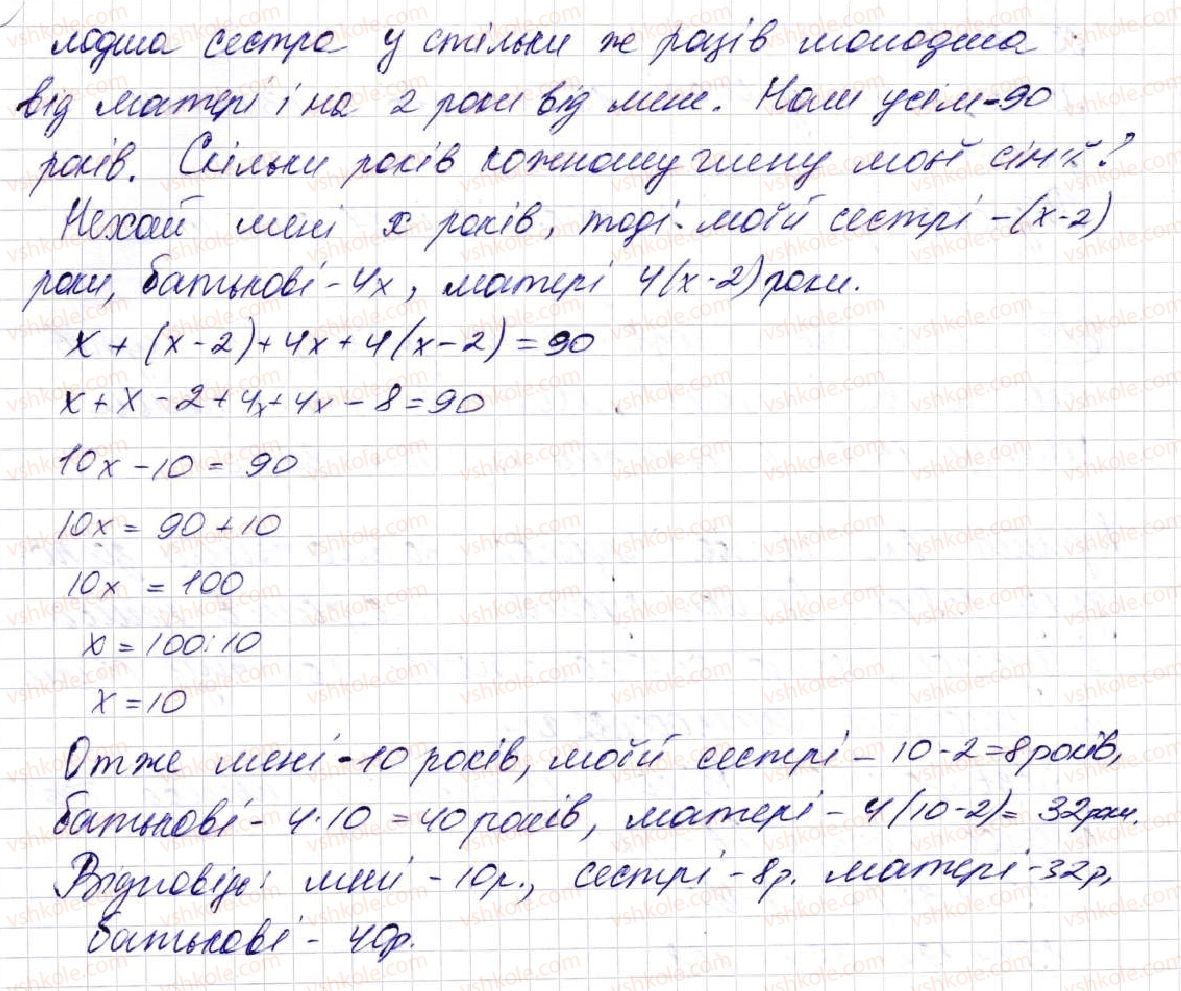 лодша сестра у стільки же разів молодша
від матері і на 2 роки від мене. Нам усім - 90
років. Скільки років кожному члену моєй сім'ї?
Нехай мені x років, тоді моїй сестрі - (x-2)
роки, батькові - 4x, матері 4(x-2) роки.
x + (x-2) + 4x + 4(x-2) = 90
x + x - 2 + 4x + 4x - 8 = 90
10x - 10 = 90
10x = 90 + 10
10x = 100
x = 100:10
x = 10
Отже мені - 10 років, моїй сестрі - 10-2=8 років,
батькові - 4·10 = 40 років, матері - 4(10-2) = 32 роки.
Відповідь: мені - 10р., сестрі - 8р. матері - 32р,
батькові - 40р.